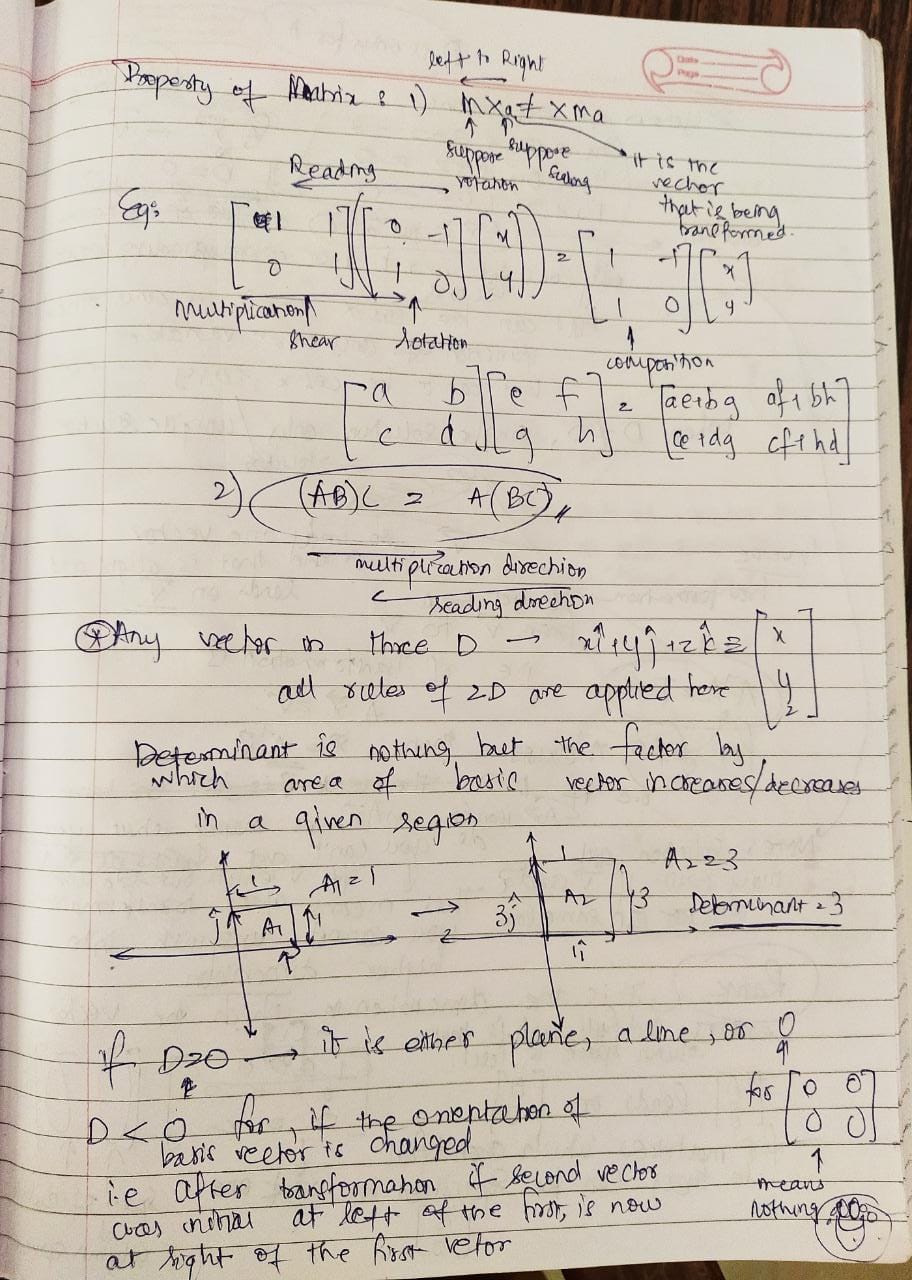 left to Right
Property of Matrix : 1) m x a ≠ x m a
suppose rotation
suppose scaling
it is the vector that is being transformed.
Reading
Eg: [1 1; 0 1] ([0 -1; 1 0] [x; y]) = [1 -1; 1 0] [x; y]
Multiplication
shear
rotation
composition
[a b; c d] [e f; g h] = [ae+bg af+bh; ce+dg cf+hd]
2) (AB)C = A(BC)
multiplication direction
reading direction
* Any vector in three D → xî+yĵ+zk̂ = [x; y; z]
all rules of 2D are applied here
Determinant is nothing but the factor by
which area of basic vector increases/decreases
in a given region
1 A₁ = 1
ĵ A₁ 1
1 A₂ = 3
3ĵ A₂ 3 Determinant = 3
1î
if D=0 → it is either plane, a line, or 0
for [0 0; 0 0]
means nothing
D < 0 for, if the orientation of
basis vector is changed
i.e after transformation if second vector
was initial at left of the first, is now
at right of the first vetor